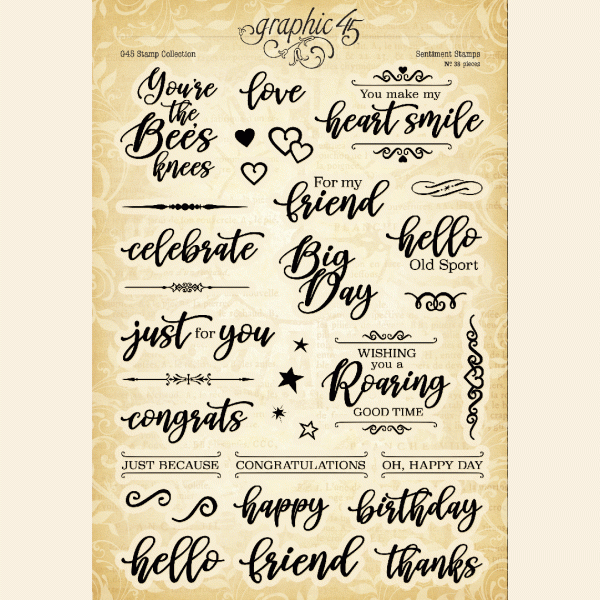 graphic 45
G45 Stamp Collection
Sentiment Stamps
Nº 38 pieces
You're
the
Bee's
knees
love
You make my
heart smile
For my
friend
hello
Old Sport
celebrate
Big
Day
just for you
WISHING
you a
Roaring
GOOD TIME
congrats
JUST BECAUSE
CONGRATULATIONS
OH, HAPPY DAY
happy
birthday
hello
friend
thanks